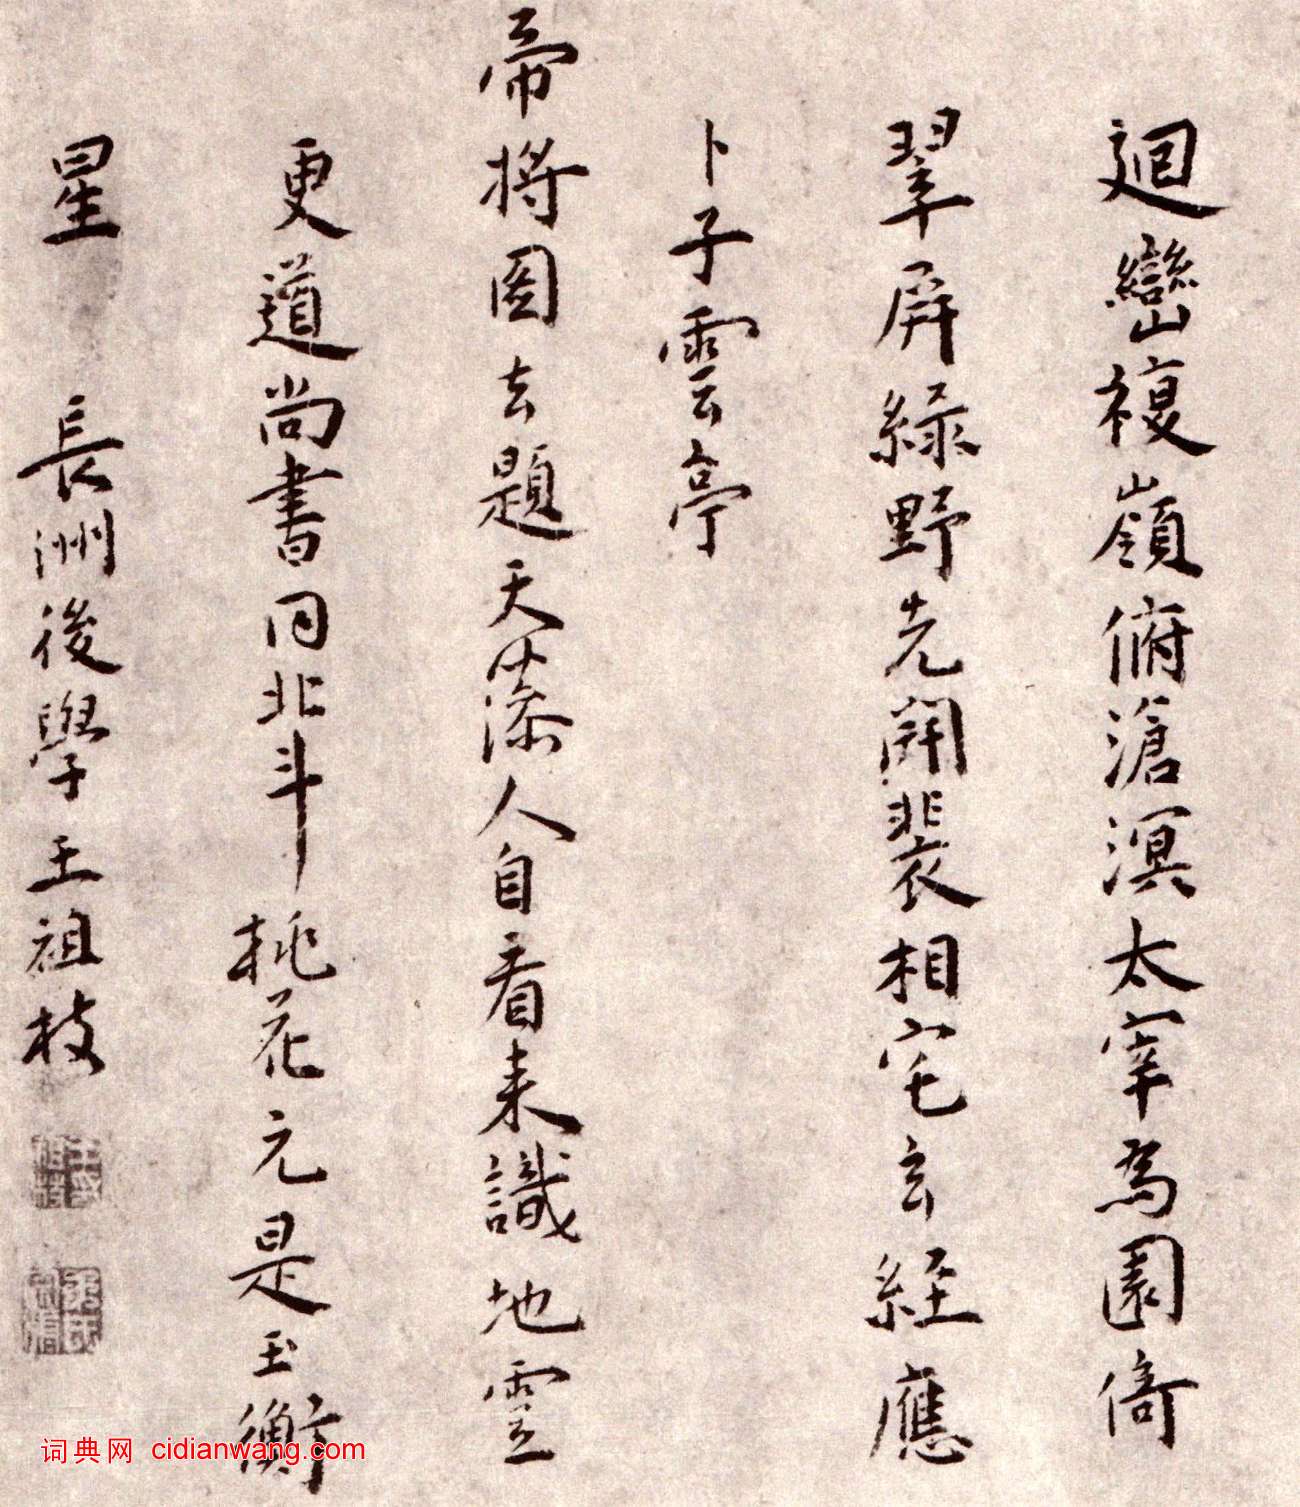 迴巒複嶺俯滄溟太宰為園倚
翠屏綠野先開裴相宅玄經應
卜子雲亭
帝將圖去題天藻人自看來識地靈
更道尚書同北斗桃花元是玉衡
星 長洲後學王祖枝
词典网 cidianwang.com